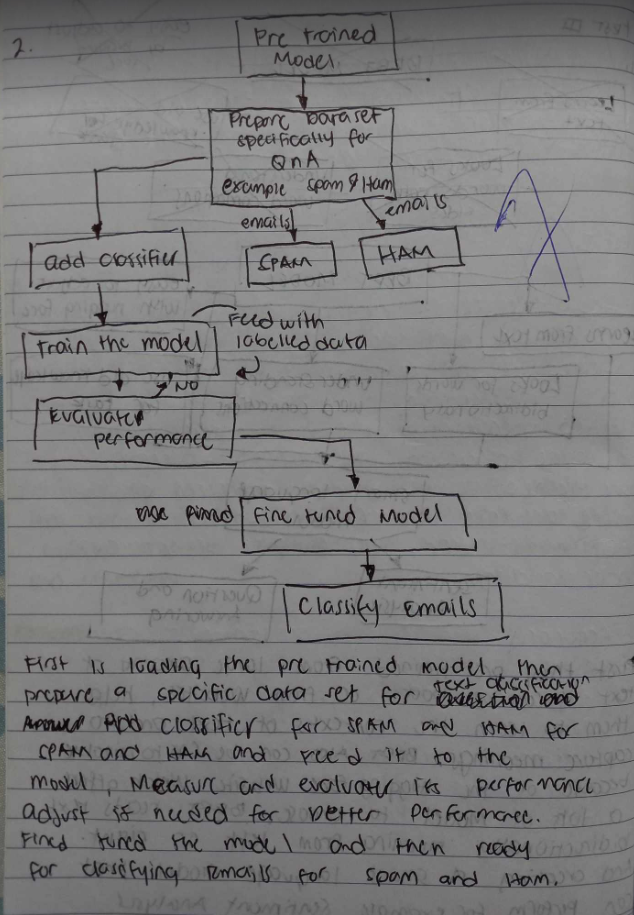 2.
Pre trained
Model
Prepare Dataset
specifically for
QnA
example spam & Ham
emails
emails
add classifier
SPAM
HAM
Train the model
Feed with
labelled data
NO
Evaluate
performance
Fine tuned Model
Classify Emails
First is loading the pre trained model then
prepare a specific data set for text classification
Add classifier for SPAM and HAM for
SPAM and HAM and Feed it to the
model, Measure and evaluate its performance
adjust if needed for better performance.
Fined tuned the model and then ready
for classifying Emails for spam and Ham.